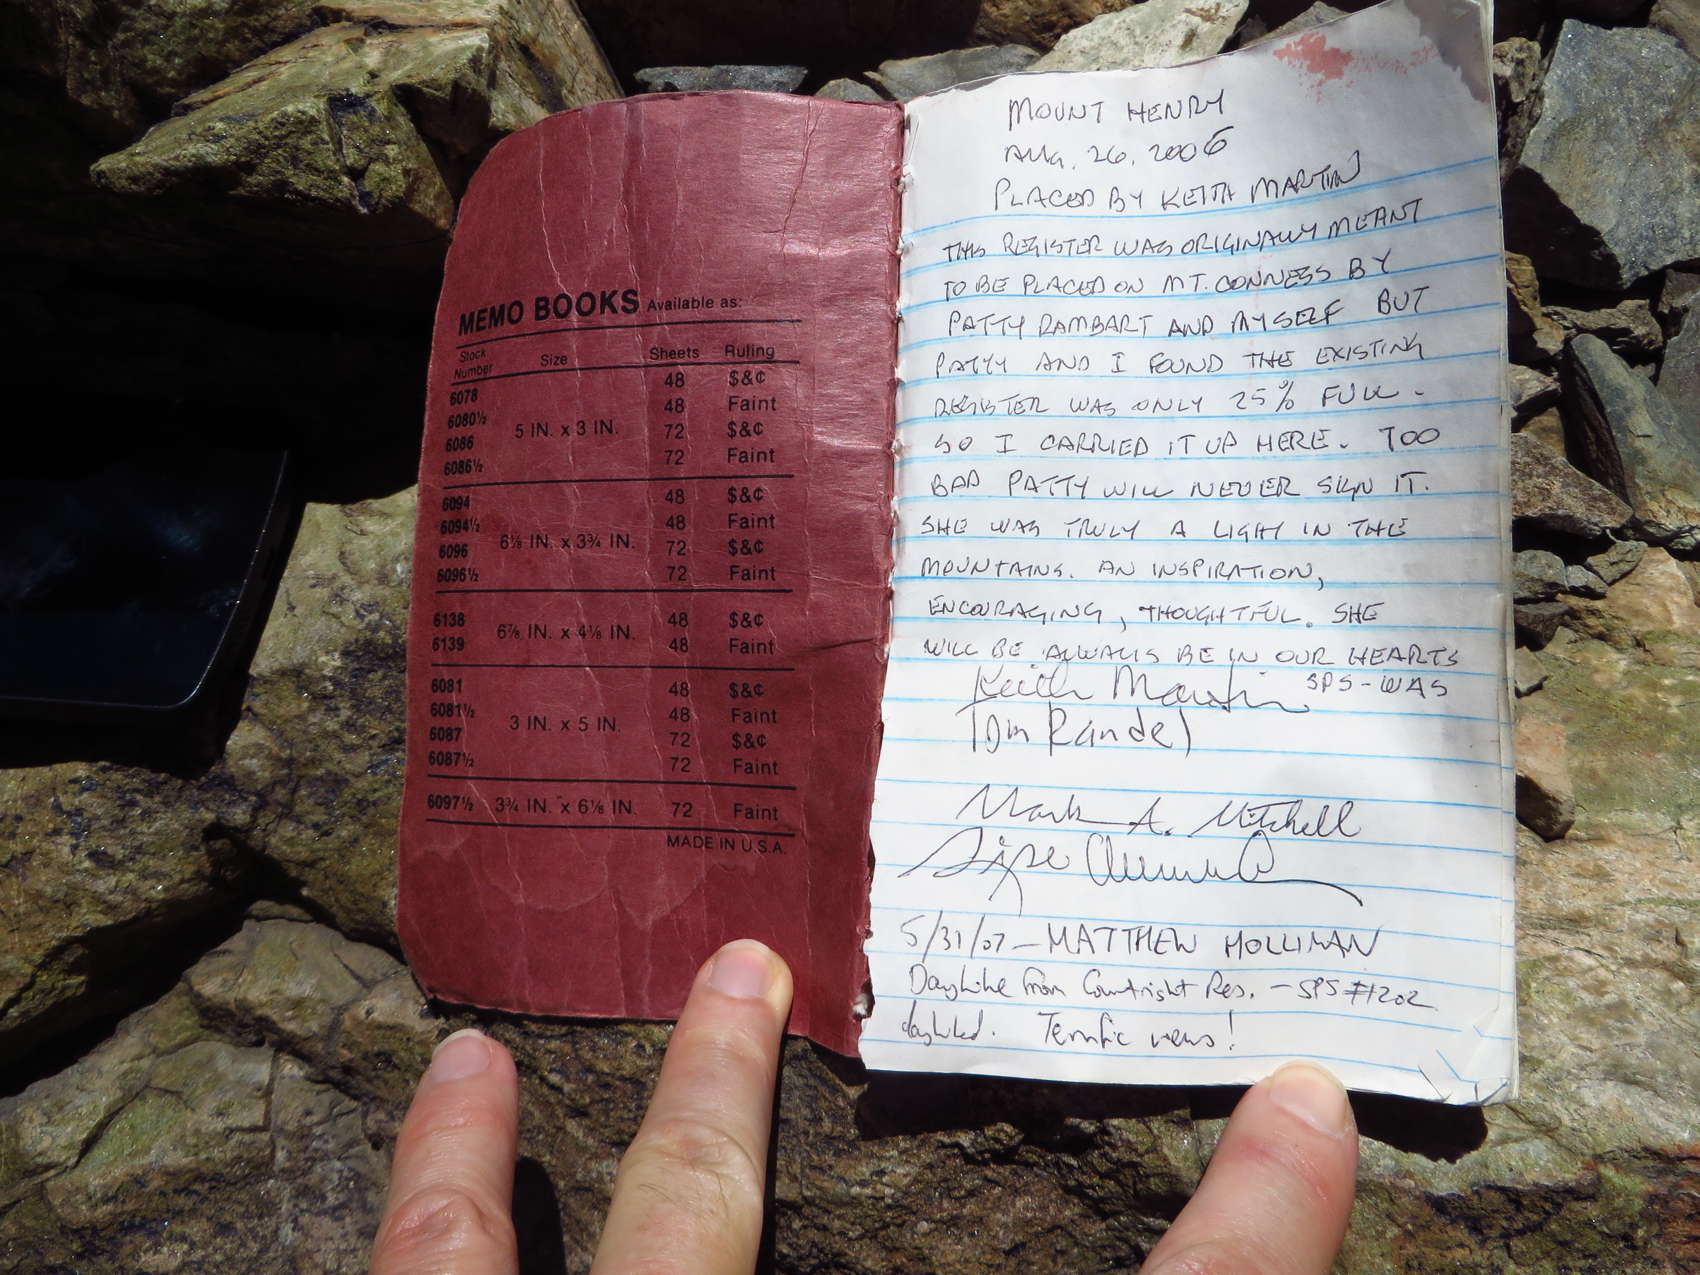 MEMO BOOKS Available as:
Stock Number Size Sheets Ruling
6078 48 $&¢
6080½ 48 Faint
5 IN. x 3 IN.
6086 72 $&¢
6086½ 72 Faint
6094 48 $&¢
6094½ 48 Faint
6⅛ IN. x 3¾ IN.
6096 72 $&¢
6096½ 72 Faint
6138 48 $&¢
6⅞ IN. x 4⅛ IN.
6139 48 Faint
6081 48 $&¢
6081½ 48 Faint
3 IN. x 5 IN.
6087 72 $&¢
6087½ 72 Faint
6097½ 3¾ IN. x 6⅛ IN. 72 Faint
MADE IN U.S.A.
MOUNT HENRY
AUG. 26, 2006
PLACED BY KEITH MARTIN
THIS REGISTER WAS ORIGINALLY MEANT
TO BE PLACED ON MT. CONNESS BY
PATTY RAMBART AND MYSELF BUT
PATTY AND I FOUND THE EXISTING
REGISTER WAS ONLY 25% FULL.
SO I CARRIED IT UP HERE. TOO
BAD PATTY WILL NEVER SIGN IT.
SHE WAS TRULY A LIGHT IN THE
MOUNTAINS. AN INSPIRATION,
ENCOURAGING, THOUGHTFUL. SHE
WILL BE ALWAYS BE IN OUR HEARTS
Keith Martin SPS-WAS
Tom Randel
Mark A. Mitchell
5/31/07 - MATTHEW HOLLIMAN
Dayhike from Courtright Res. - SPS #1202
dayhiked. Terrific views!